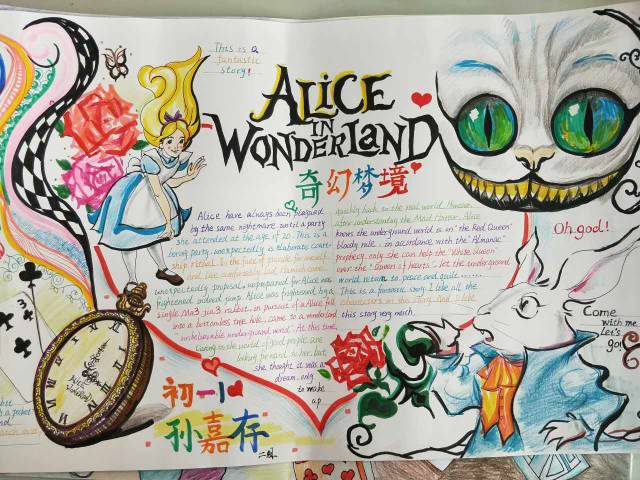 This is a
fantastic
story!
ALICE
IN
WONDERLAND
奇幻梦境
Alice have always been plagued
by the same nightmare until a party
she attended at the age of 20. This is a
boring party, unexpectedly is elaborate court-
ship
unexpectedly proposed, unprepared for Alice was
frightened indeed jump. Alice was frightened by a
single Ma3 jia3 rabbit, in pursuit of a Alice fell
into a bottomless tree hole, came to a wonderland
"unbelievable underground world". At this time,
Living in the world of good people are
looking forward to her, but
she thought it was a
dream, only
to make
up
quickly back in the real world. However,
after understanding the Mad Horror, Alice
knows the underground world is in "the Red Queen"
bloody rule, in accordance with the "Almanac"
prophecy, only she can help the "White Queen"
over the "Queen of hearts", let the underground
world return to peace and quiet......
This is a fantastic story. I like all the
characters in the story. And I like
this story very much.
Oh, god!
Come
with me,
let's
go!
初一1
孙嘉存